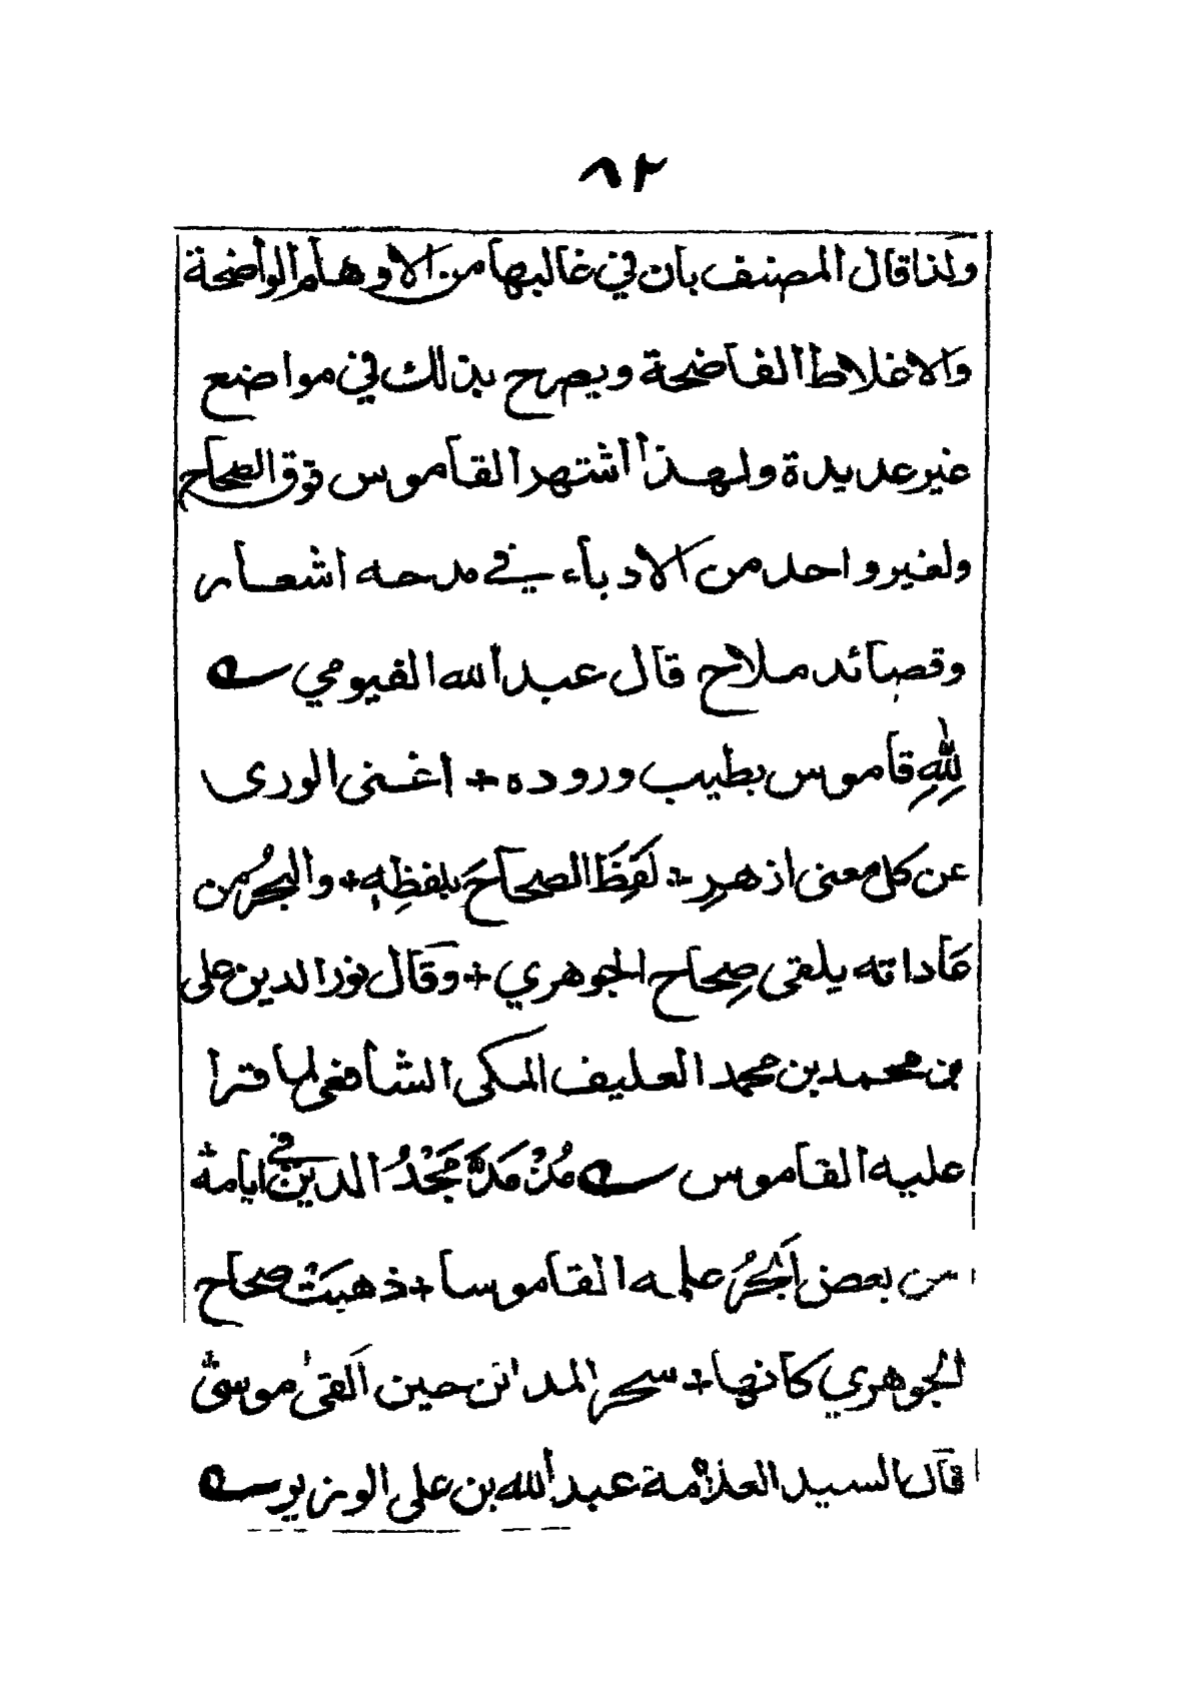 ٨٢
ولذا قال المصنف بان في غالبها من الاوهام الواضحة
والاغلاط الفاضحة ويصرح بذلك في مواضع
غير عديدة ولهذا اشتهر القاموس فوق الصحاح
ولغير واحد من الادباء في مدحه اشعار
وقصائد ملاح قال عبد الله الفيومي
لِلّٰهِ قاموس بطيب وروده + اغنى الورى
عن كل معنى ازهرِ + لَفِظَ الصحاحَ بلفظِهٖ + والبحرُ من
عَاداته يلقى صِحاح الجوهري + وقال نور الدين على
بن محمد بن محمد العليف المكى الشافعى لما قرا
عليه القاموس مُذْ مَدَّ مَجْدُ الدين في ايامه
من بعض اَبْحُرُ علمه القاموسا + ذهبَتْ صحاح
الجوهري كانها + سحر المدائن حين اَلقىٰ موسىٰ
قال السيد العلامة عبد الله بن على الوزير